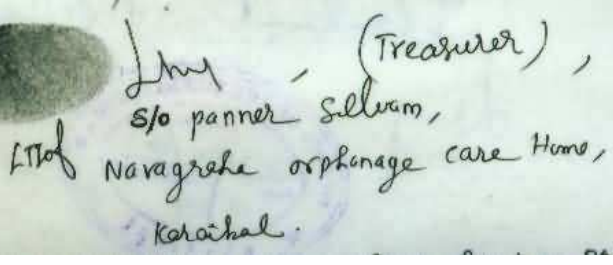 (Treasurer),
s/o panner Selvam,
LTI of Navagraha orphanage care Home,
Karaikal.